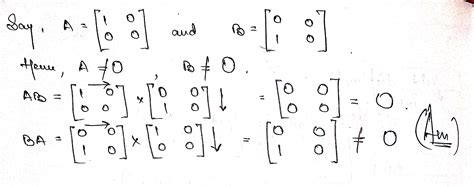 Say, A = [1 0; 0 0] and B = [0 0; 1 0]
Hence, A ≠ 0, B ≠ 0.
AB = [1 0; 0 0] × [0 0; 1 0] ↓ = [0 0; 0 0] = 0.
BA = [0 0; 1 0] × [1 0; 0 0] ↓ = [0 0; 1 0] ≠ 0 (Ans)